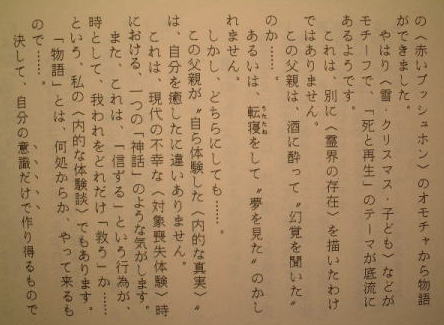 の〈赤いプッシュホン〉のオモチャから物語
ができました。
やはり〈雪・クリスマス・子ども〉などが
モチーフで、「死と再生」のテーマが底流に
あるようです。
これは、別に〈霊界の存在〉を描いたわけ
ではありません。
この父親は、酒に酔って〝幻覚を聞いた〟
のか……。
あるいは、転寝をして〝夢を見た〟のかし
うたたね
れません。
しかし、どちらにしても……。
この父親が〝自ら体験した〈内的な真実〉〟
は、自分を癒したに違いありません。
これは、現代の不幸な〈対象喪失体験〉時
における、一つの「神話」のような気がします。
また、これは、「信ずる」という行為が、
時として、我われをどれだけ「救う」か……
という、私の〈内的な体験談〉でもあります。
「物語」とは、何処からか、やって来るも
ので……。
決して、自分の意識だけで作り得るもので